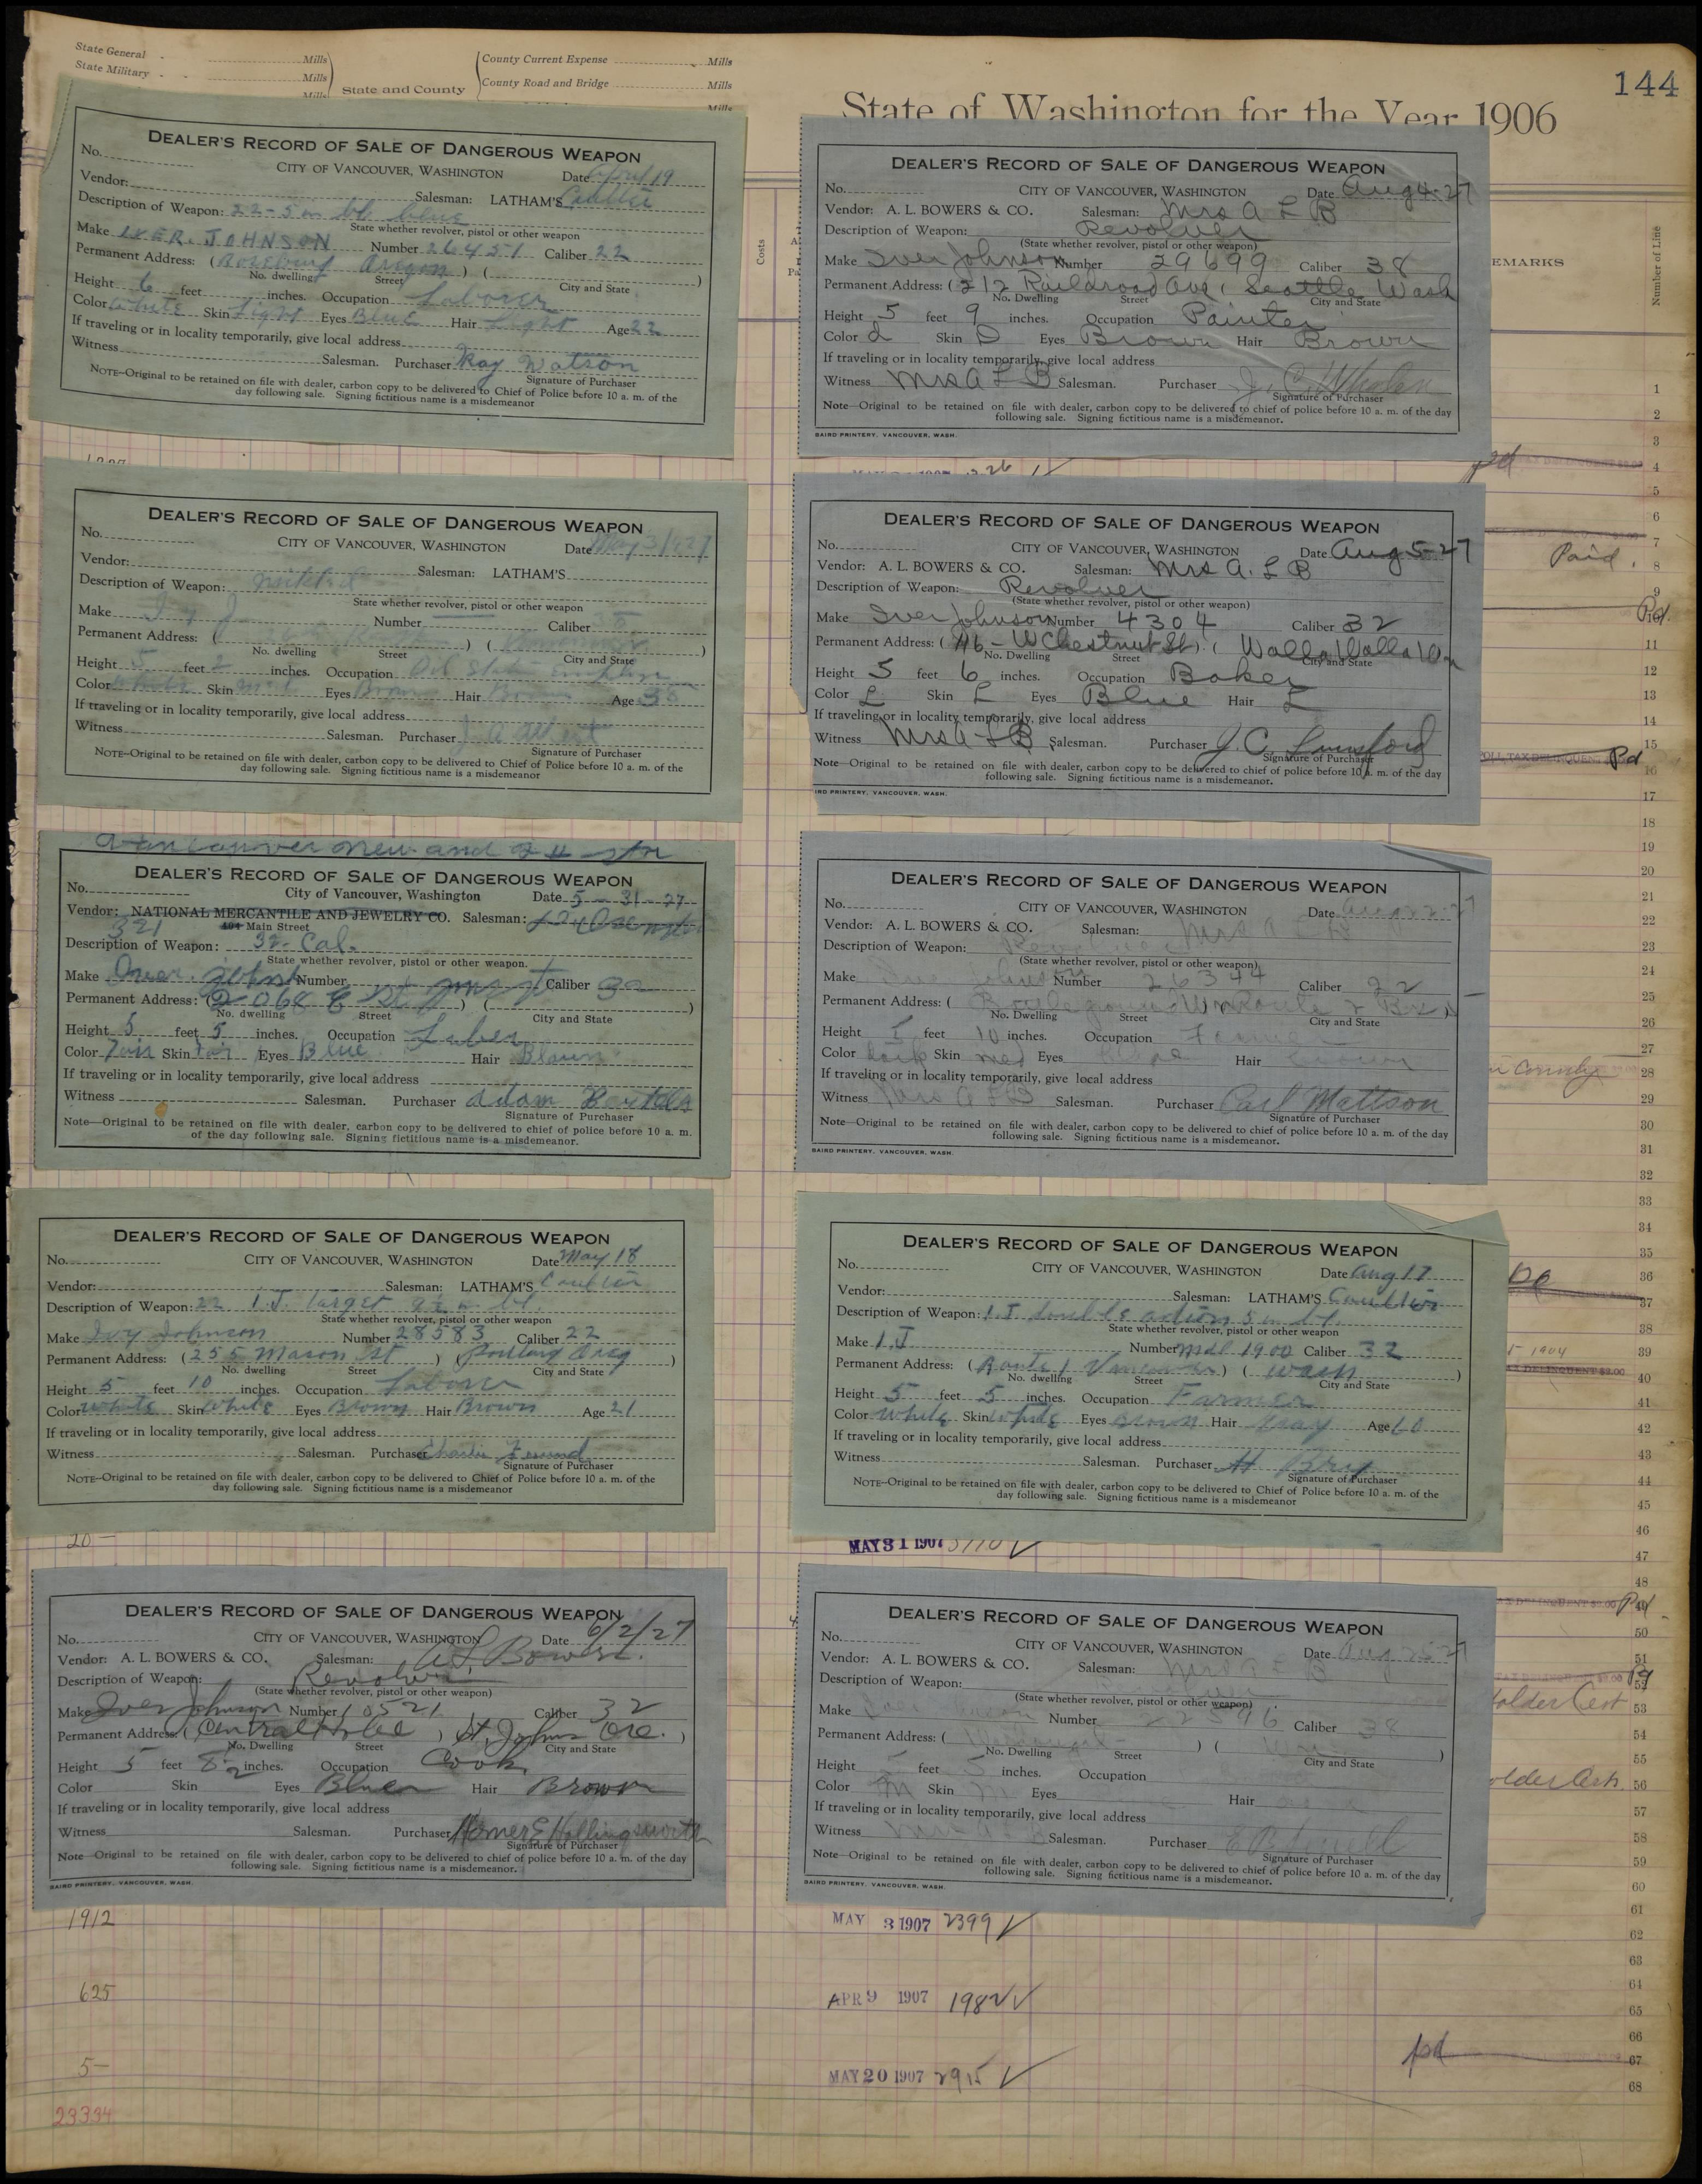 State General Mills
State Military Mills
Mills
State and County
County Current Expense Mills
County Road and Bridge Mills
Mills
144
State of Washington for the Year 1906
DEALER'S RECORD OF SALE OF DANGEROUS WEAPON
No.
CITY OF VANCOUVER, WASHINGTON Date April 19
Vendor: Salesman: LATHAM'S
Description of Weapon: 22-5 in bbl blue
State whether revolver, pistol or other weapon
Make IVER. JOHNSON Number 26451 Caliber 22
Permanent Address: (Roseburg Oregon) ( )
No. dwelling Street City and State
Height 6 feet inches. Occupation Laborer
Color White Skin Light Eyes Blue Hair Light Age 22
If traveling or in locality temporarily, give local address
Witness Salesman. Purchaser Ray Watson
Signature of Purchaser
NOTE—Original to be retained on file with dealer, carbon copy to be delivered to Chief of Police before 10 a. m. of the
day following sale. Signing fictitious name is a misdemeanor
DEALER'S RECORD OF SALE OF DANGEROUS WEAPON
No.
CITY OF VANCOUVER, WASHINGTON Date May 3 1927
Vendor: Salesman: LATHAM'S
Description of Weapon:
State whether revolver, pistol or other weapon
Make I & J Number Caliber
Permanent Address: ( ) ( )
No. dwelling Street City and State
Height 5 feet 2 inches. Occupation Oil Station
Color White Skin Eyes Brown Hair Brown Age 35
If traveling or in locality temporarily, give local address
Witness Salesman. Purchaser J A
Signature of Purchaser
NOTE—Original to be retained on file with dealer, carbon copy to be delivered to Chief of Police before 10 a. m. of the
day following sale. Signing fictitious name is a misdemeanor
Vancouver New and
DEALER'S RECORD OF SALE OF DANGEROUS WEAPON
No.
City of Vancouver, Washington Date 5-31-27
Vendor: NATIONAL MERCANTILE AND JEWELRY CO. Salesman:
321 Main Street
Description of Weapon: 32- Cal.
State whether revolver, pistol or other weapon.
Make Iver Johns Number Caliber 32
Permanent Address: (2068 E St ) ( )
No. dwelling Street City and State
Height 5 feet 5 inches. Occupation Laber
Color Fair Skin Fair Eyes Blue Hair Blaun
If traveling or in locality temporarily, give local address
Witness Salesman. Purchaser Adam
Signature of Purchaser
Note—Original to be retained on file with dealer, carbon copy to be delivered to chief of police before 10 a. m.
of the day following sale. Signing fictitious name is a misdemeanor.
DEALER'S RECORD OF SALE OF DANGEROUS WEAPON
No.
CITY OF VANCOUVER, WASHINGTON Date May 18
Vendor: Salesman: LATHAM'S
Description of Weapon: 22 I.J. target
State whether revolver, pistol or other weapon
Make Ivy Johnson Number 28583 Caliber 22
Permanent Address: (255 Mason St) (Portland Oreg)
No. dwelling Street City and State
Height 5 feet 10 inches. Occupation Laborer
Color White Skin White Eyes Brown Hair Brown Age 21
If traveling or in locality temporarily, give local address
Witness Salesman. Purchaser Charlie
Signature of Purchaser
NOTE—Original to be retained on file with dealer, carbon copy to be delivered to Chief of Police before 10 a. m. of the
day following sale. Signing fictitious name is a misdemeanor
20—
DEALER'S RECORD OF SALE OF DANGEROUS WEAPON
No.
CITY OF VANCOUVER, WASHINGTON Date 6/2/27
Vendor: A. L. BOWERS & CO. Salesman: A L Bowers.
Description of Weapon: Revolver
(State whether revolver, pistol or other weapon)
Make Iver Johnson Number 10521 Caliber 32
Permanent Address: (Central Hotel) St. Johns Ore. )
No. Dwelling Street City and State
Height 5 feet 8 1/2 inches. Occupation Cook
Color Skin Eyes Blue Hair Brown
If traveling or in locality temporarily, give local address
Witness Salesman. Purchaser Homer E Hollingsworth
Signature of Purchaser
Note—Original to be retained on file with dealer, carbon copy to be delivered to chief of police before 10 a. m. of the day
following sale. Signing fictitious name is a misdemeanor.
BAIRD PRINTERY, VANCOUVER, WASH.
1912
625
5—
23334
Costs
DEALER'S RECORD OF SALE OF DANGEROUS WEAPON
No.
CITY OF VANCOUVER, WASHINGTON Date Aug 4-27
Vendor: A. L. BOWERS & CO. Salesman: Mrs A L B
Description of Weapon: Revolver
(State whether revolver, pistol or other weapon)
Make Iver Johnson Number 29699 Caliber 38
Permanent Address: (212 Raildroad Ave ( Seattle Wash
No. Dwelling Street City and State
Height 5 feet 9 inches. Occupation Painter
Color d Skin D Eyes Brown Hair Brown
If traveling or in locality temporarily, give local address
Witness Mrs A L B Salesman. Purchaser J. C. Whalen
Signature of Purchaser
Note—Original to be retained on file with dealer, carbon copy to be delivered to chief of police before 10 a. m. of the day
following sale. Signing fictitious name is a misdemeanor.
BAIRD PRINTERY, VANCOUVER, WASH.
DEALER'S RECORD OF SALE OF DANGEROUS WEAPON
No.
CITY OF VANCOUVER, WASHINGTON Date Aug 5-27
Vendor: A. L. BOWERS & CO. Salesman: Mrs A. L B
Description of Weapon: Revolver
(State whether revolver, pistol or other weapon)
Make Iver Johnson Number 4304 Caliber 32
Permanent Address: (46-W Chestnut St) ( Walla Walla Wn
No. Dwelling Street City and State
Height 5 feet 6 inches. Occupation Baker
Color L Skin L Eyes Blue Hair L
If traveling or in locality temporarily, give local address
Witness Mrs A L B Salesman. Purchaser J. C. Lunsford
Signature of Purchaser
Note—Original to be retained on file with dealer, carbon copy to be delivered to chief of police before 10 a. m. of the day
following sale. Signing fictitious name is a misdemeanor.
IRD PRINTERY, VANCOUVER, WASH.
DEALER'S RECORD OF SALE OF DANGEROUS WEAPON
No.
CITY OF VANCOUVER, WASHINGTON Date Aug 22-27
Vendor: A. L. BOWERS & CO. Salesman: Mrs A L B
Description of Weapon: Revolver
(State whether revolver, pistol or other weapon)
Make Iver Johnson Number 26344 Caliber 22
Permanent Address: (Battleground Wn Route 2 Box
No. Dwelling Street City and State
Height 5 feet 10 inches. Occupation Farmer
Color dark Skin med Eyes Hair brown
If traveling or in locality temporarily, give local address
Witness Mrs A L B Salesman. Purchaser Carl Mattson
Signature of Purchaser
Note—Original to be retained on file with dealer, carbon copy to be delivered to chief of police before 10 a. m. of the day
following sale. Signing fictitious name is a misdemeanor.
BAIRD PRINTERY, VANCOUVER, WASH.
DEALER'S RECORD OF SALE OF DANGEROUS WEAPON
No.
CITY OF VANCOUVER, WASHINGTON Date Aug 17
Vendor: Salesman: LATHAM'S
Description of Weapon: I.J double action 5 in bl.
State whether revolver, pistol or other weapon
Make I.J Number Mdl 1900 Caliber 32
Permanent Address: (Route 1 Vancouver) ( Wash )
No. dwelling Street City and State
Height 5 feet 5 inches. Occupation Farmer
Color White Skin White Eyes Brown Hair Gray Age 60
If traveling or in locality temporarily, give local address
Witness Salesman. Purchaser H
Signature of Purchaser
NOTE—Original to be retained on file with dealer, carbon copy to be delivered to Chief of Police before 10 a. m. of the
day following sale. Signing fictitious name is a misdemeanor
MAY 31 1907
DEALER'S RECORD OF SALE OF DANGEROUS WEAPON
No.
CITY OF VANCOUVER, WASHINGTON Date Aug 25 27
Vendor: A. L. BOWERS & CO. Salesman: Mrs A L B
Description of Weapon:
(State whether revolver, pistol or other weapon)
Make Iver Johnson Number 22596 Caliber 38
Permanent Address: ( ) ( )
No. Dwelling Street City and State
Height 5 feet 5 inches. Occupation
Color M Skin M Eyes Hair
If traveling or in locality temporarily, give local address
Witness Mrs A L B Salesman. Purchaser
Signature of Purchaser
Note—Original to be retained on file with dealer, carbon copy to be delivered to chief of police before 10 a. m. of the day
following sale. Signing fictitious name is a misdemeanor.
BAIRD PRINTERY, VANCOUVER, WASH.
MAY 3 1907 2399
APR 9 1907 1982
MAY 20 1907 2915
EMARKS
Number of Line
1
2
3
pd 4
5
6
7
Paid. 8
9
Pd. 10
11
12
13
14
15
Pd
16
17
18
19
20
21
22
23
24
25
26
27
County 28
29
30
31
32
33
34
35
36
37
38
1904 39
DELINQUENT $2.00
40
41
42
43
44
45
46
47
48
Pd 49
50
51
52
older Cert 53
54
55
older Cert 56
57
58
59
60
61
62
63
64
65
66
pd 67
68